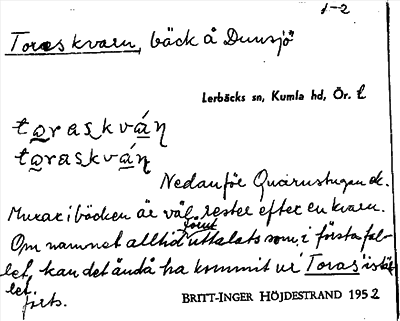 1-2
Toras kvarn, bäck å Dunsjö
Lerbäcks sn, Kumla hd, Ör. l
ta̲raskvá̲ɳ
to̲raskvá̲ɳ
Nedanför Quarnstugan
Murar i bäcken är väl rester efter en kvarn.
Om namnet alltid förut uttalats som i första fal-
let, kan det ändå ha kommit ur Toras i stäl-
let.
forts.
BRITT-INGER HÖJDESTRAND 1952